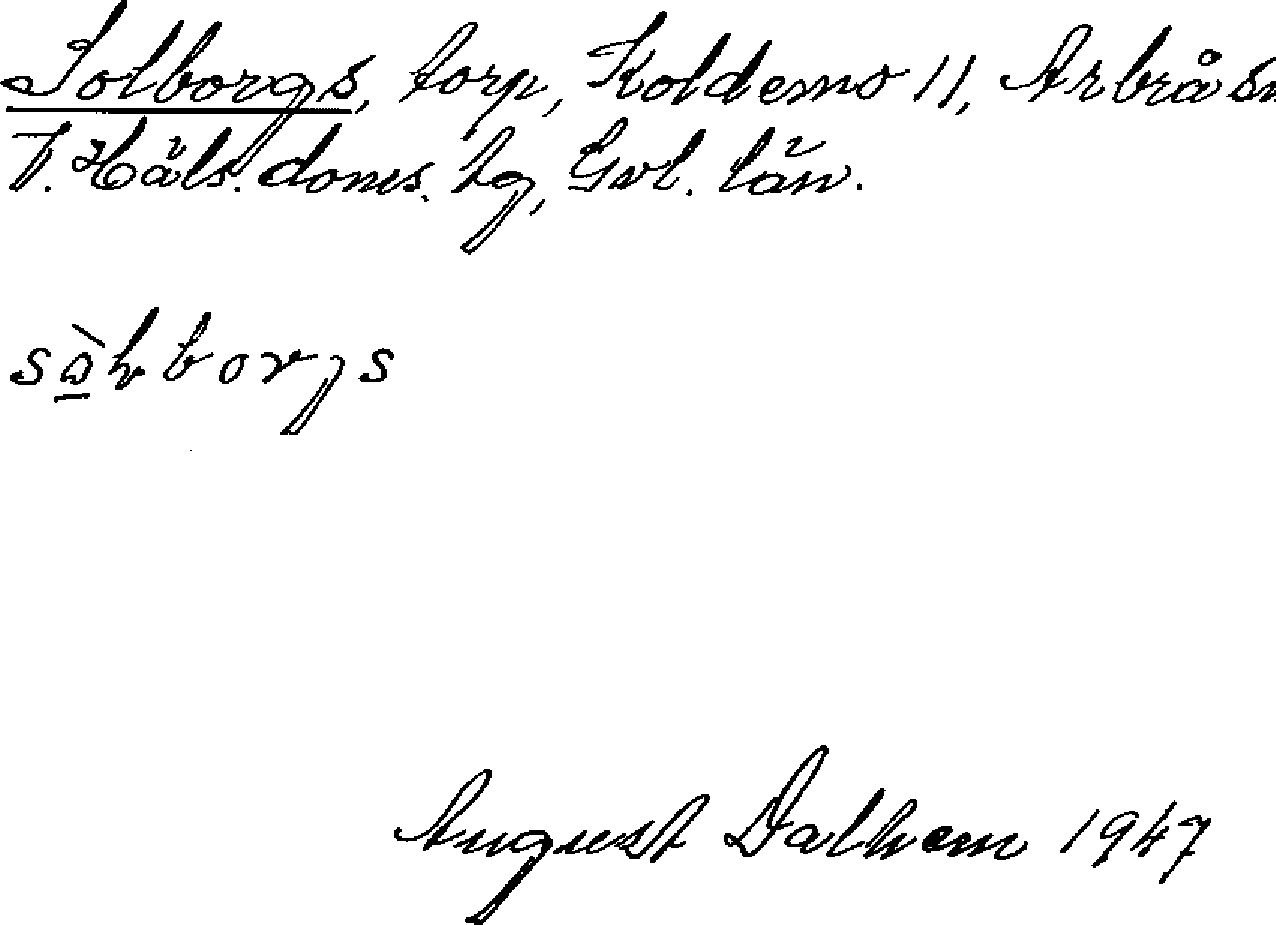 Solborgs, torp, Koldemo 11, Arbrå sn
V. Häls. doms. hg, Gvl. län.
August Dalhem 1947